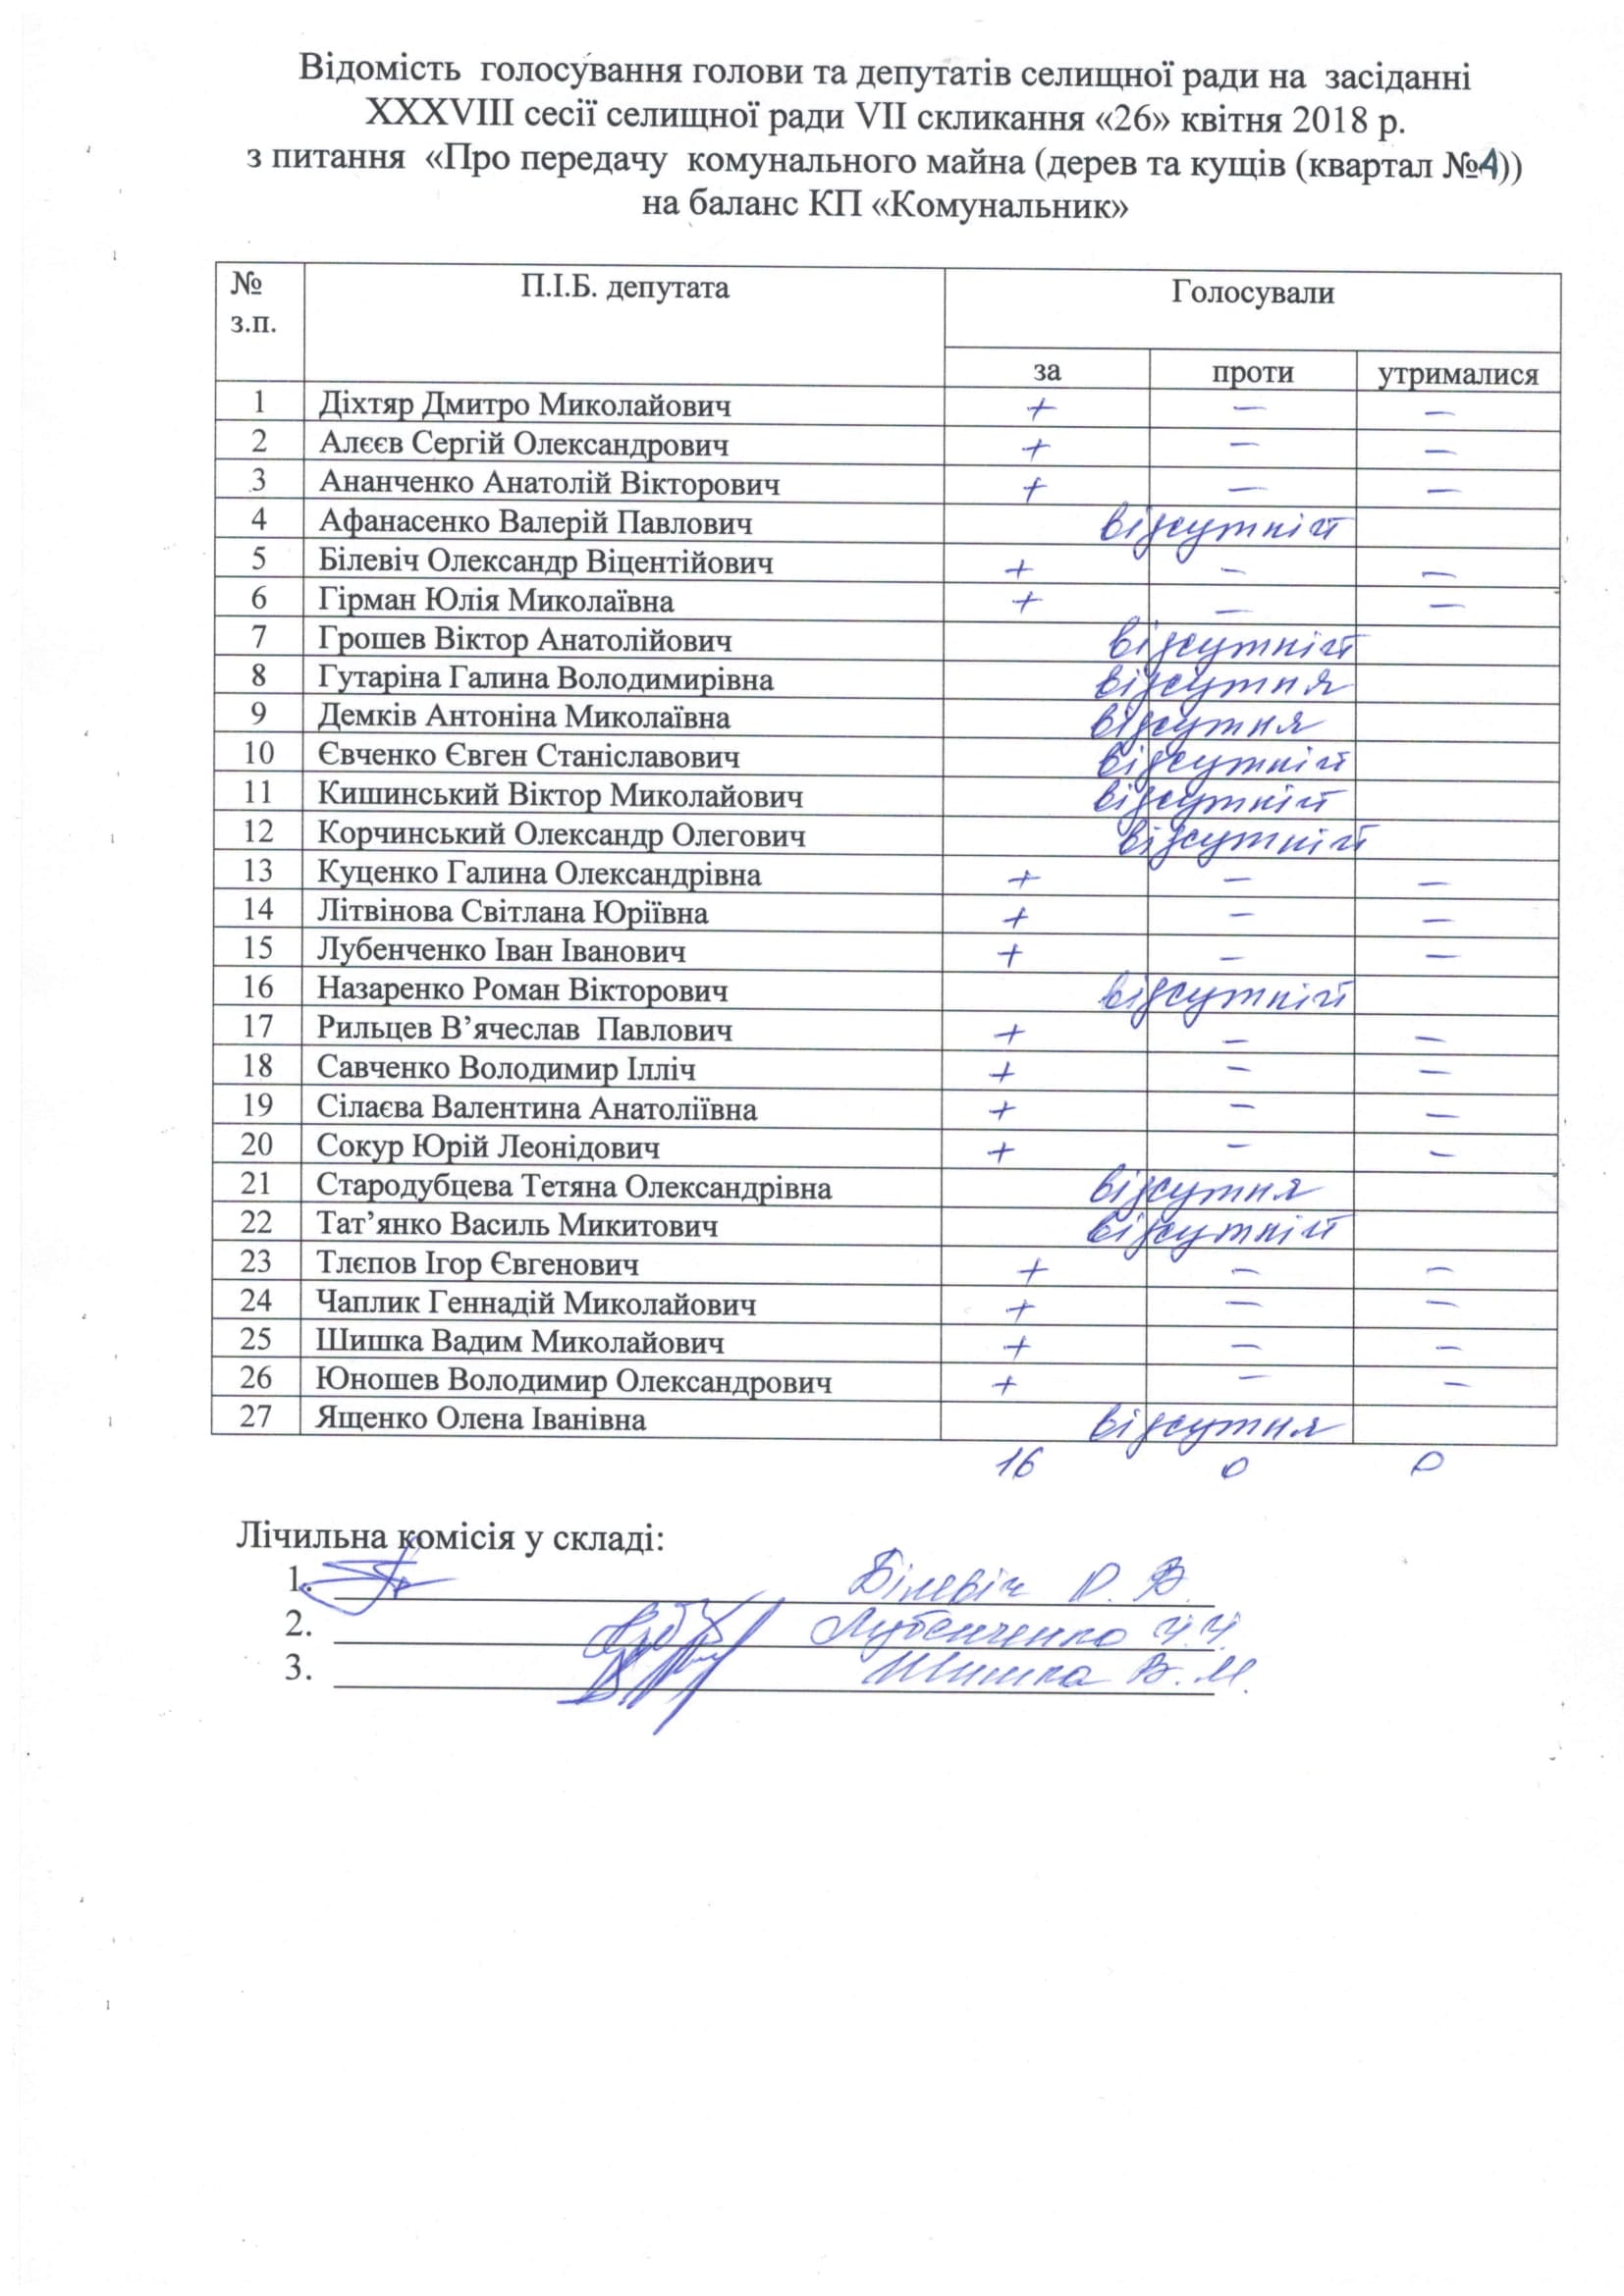 Відомість голосування голови та депутатів селищної ради на засіданні
XXXVIII сесії селищної ради VII скликання «26» квітня 2018 р.
з питання «Про передачу комунального майна (дерев та кущів (квартал №))
на баланс КП «Комунальник»
№ з.п. П.І.Б. депутата Голосували
за проти утрималися
1 Діхтяр Дмитро Миколайович + – –
2 Алєєв Сергій Олександрович + – –
3 Ананченко Анатолій Вікторович + – –
4 Афанасенко Валерій Павлович відсутній
5 Білевіч Олександр Віцентійович + – –
6 Гірман Юлія Миколаївна + – –
7 Грошев Віктор Анатолійович відсутній
8 Гутаріна Галина Володимирівна відсутня
9 Демків Антоніна Миколаївна відсутня
10 Євченко Євген Станіславович відсутній
11 Кишинський Віктор Миколайович відсутній
12 Корчинський Олександр Олегович відсутній
13 Куценко Галина Олександрівна + – –
14 Літвінова Світлана Юріївна + – –
15 Лубенченко Іван Іванович + – –
16 Назаренко Роман Вікторович відсутній
17 Рильцев В’ячеслав Павлович + – –
18 Савченко Володимир Ілліч + – –
19 Сілаєва Валентина Анатоліївна + – –
20 Сокур Юрій Леонідович + – –
21 Стародубцева Тетяна Олександрівна відсутня
22 Тат’янко Василь Микитович відсутній
23 Тлєпов Ігор Євгенович + – –
24 Чаплик Геннадій Миколайович + – –
25 Шишка Вадим Миколайович + – –
26 Юношев Володимир Олександрович + – –
27 Ященко Олена Іванівна відсутня
16 0 0
Лічильна комісія у складі:
1. Білевіч О. В.
2. Лубенченко І.І.
3. Шишка В. М.